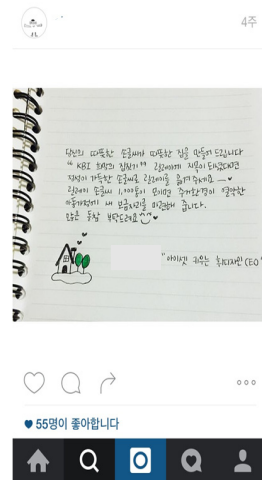 4주
당신의 따뜻한 손글씨가 따뜻한 집을 만들어 드립니다
" KB국 희망의 집짓기 " 릴레이에 지목이 되셨다면
정성이 가득한 손글씨로 릴레이를 옮겨주세요 ~ ♥
릴레이 손글씨 1,000통이 모이면 주거환경이 열악한
아동가정에 새 보금자리를 마련해 줍니다.
많은 동참 부탁드려요 ^^ ♥
"아이셋 키우는 휘디자인 CEO"
♥ 55명이 좋아합니다